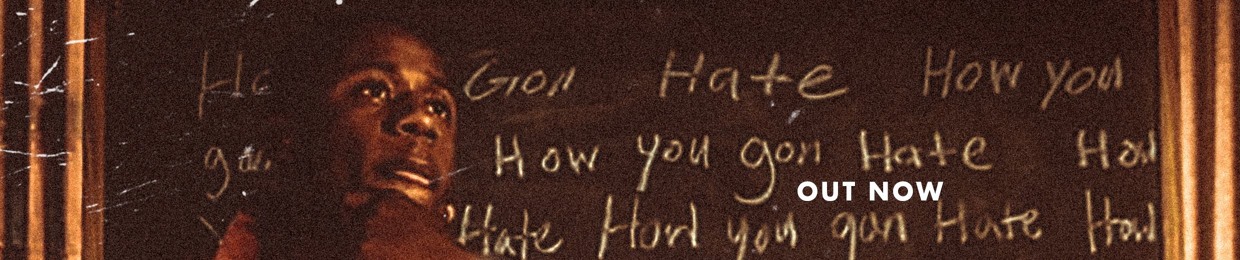 Gon Hate How you
How you gon Hate How
OUT NOW
Hate How you gon Hate How